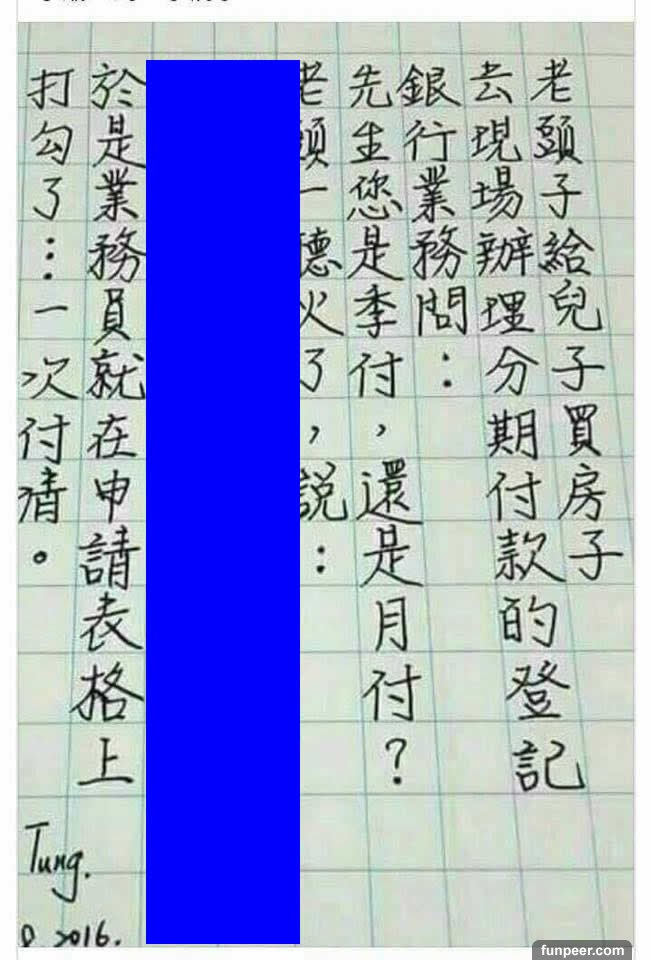 老頭子給兒子買房子
去現場辦理分期付款的登記
銀行業務問：
先生您是季付，還是月付？
老頭一聽火了，說：
於是業務員就在申請表格上
打勾了…一次付清。
Tung.
2016.
funpeer.com